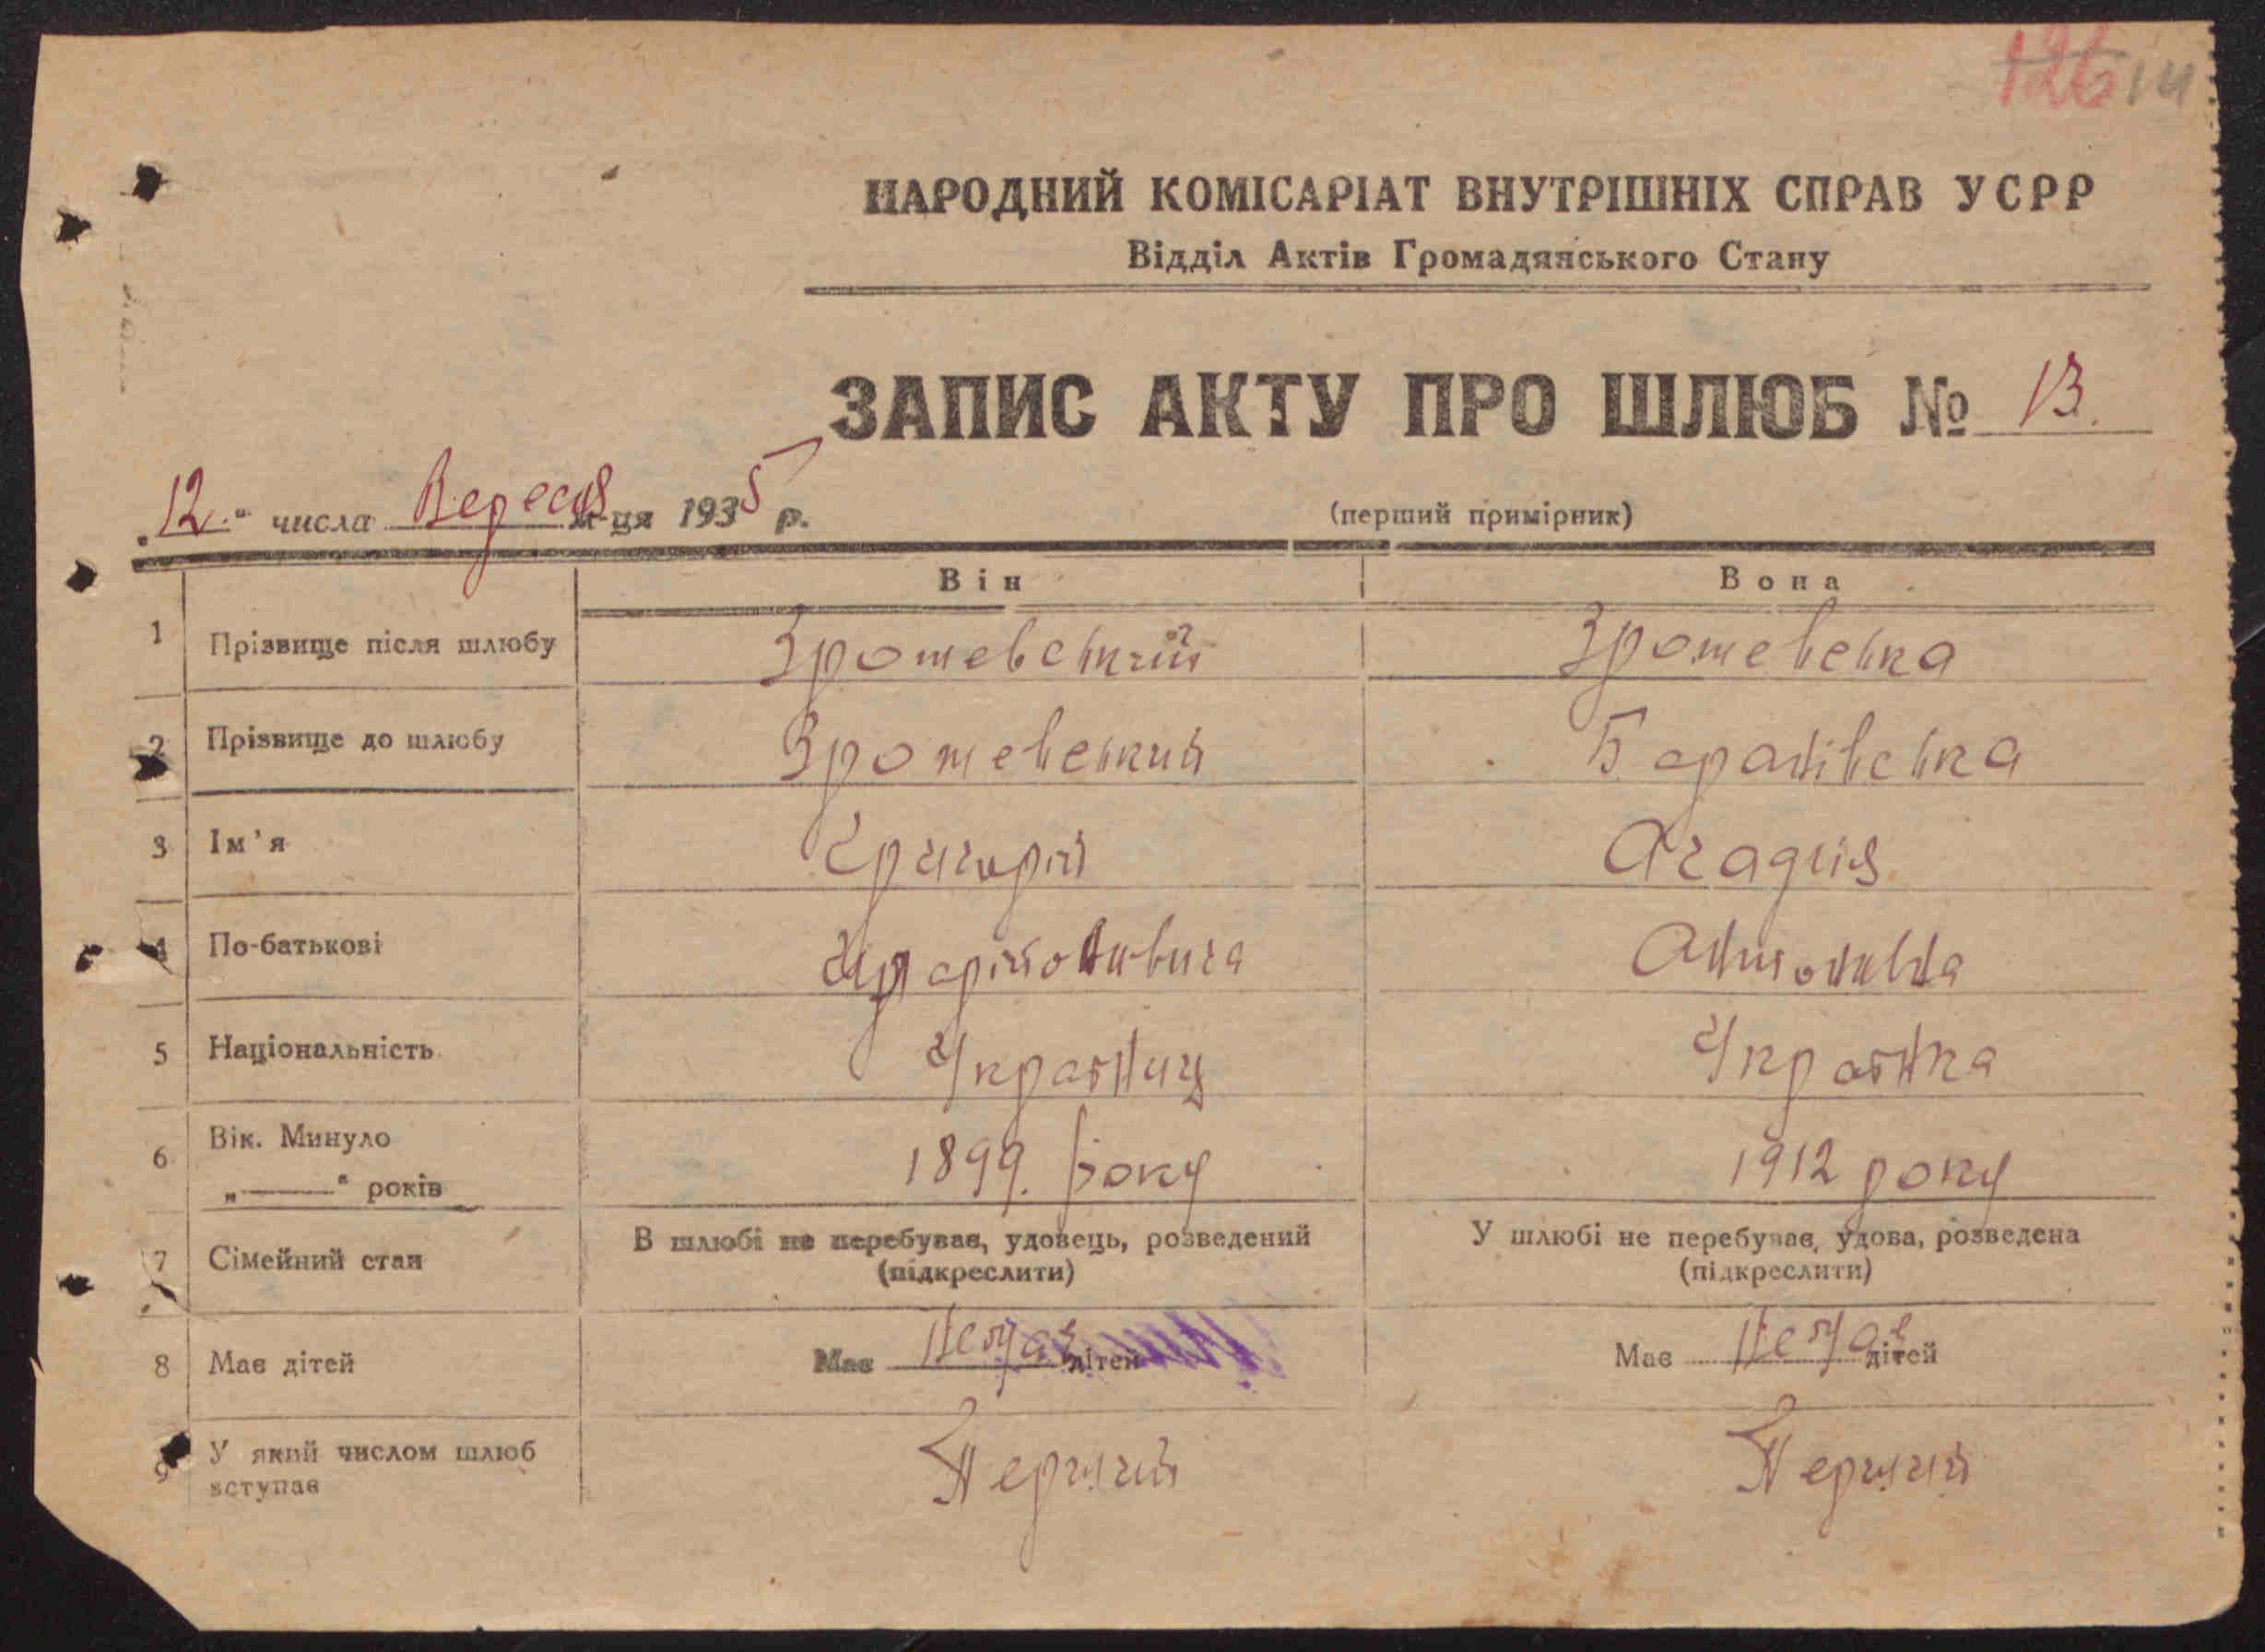 126 14
НАРОДНИЙ КОМІСАРІАТ ВНУТРІШНІХ СПРАВ УСРР
Відділ Актів Громадянського Стану
ЗАПИС АКТУ ПРО ШЛЮБ № 13.
„12." числа Вересня м-ця 1935 р. (перший примірник)
Він Вона
1 Прізвище після шлюбу Зрожевський Зрожевська
2 Прізвище до шлюбу Зрожевський Баранівська
3 Ім'я Григорій Агадия
4 По-батькові Антонивна
5 Національність Украіниц Украінка
6 Вік. Минуло
„——" років 1899. року 1912 року
7 Сімейний стан В шлюбі не перебував, удовець, розведений У шлюбі не перебував, удова, розведена
(підкреслити) (підкреслити)
8 Має дітей Має Немає дітей Має Немає дітей
9 У який числом шлюб вступає Перший Перший